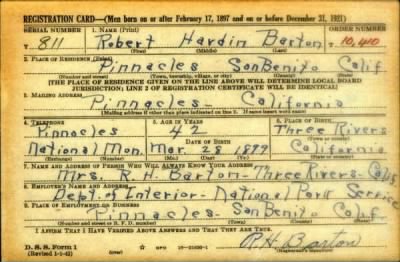 REGISTRATION CARD—(Men born on or after February 17, 1897 and on or before December 31, 1921)
SERIAL NUMBER 1. NAME (Print) ORDER NUMBER
T. 811 Robert Hardin Barton T 10,410
(First) (Middle) (Last)
2. PLACE OF RESIDENCE (Print)
Pinnacles San Benito Calif
(Number and street) (Town, township, village, or city) (County) (State)
[THE PLACE OF RESIDENCE GIVEN ON THE LINE ABOVE WILL DETERMINE LOCAL BOARD
JURISDICTION; LINE 2 OF REGISTRATION CERTIFICATE WILL BE IDENTICAL]
3. MAILING ADDRESS
Pinnacles - California
[Mailing address if other than place indicated on line 2. If same insert word same]
4. TELEPHONE 5. AGE IN YEARS 6. PLACE OF BIRTH
Pinnacles 42 Three Rivers
DATE OF BIRTH
National Mon. Mar 28 1899 California
(Exchange) (Number) (Mo.) (Day) (Yr.) (State or country)
7. NAME AND ADDRESS OF PERSON WHO WILL ALWAYS KNOW YOUR ADDRESS
Mrs. R. H. Barton - Three Rivers - Calif
8. EMPLOYER'S NAME AND ADDRESS
Dept. of Interior National Park Service
9. PLACE OF EMPLOYMENT OR BUSINESS
Pinnacles - San Benito Calif
(Number and street or R. F. D. number) (Town) (County) (State)
I AFFIRM THAT I HAVE VERIFIED ABOVE ANSWERS AND THAT THEY ARE TRUE.
D. S. S. Form 1
(Revised 1-1-42) (over) GPO R.H. Barton